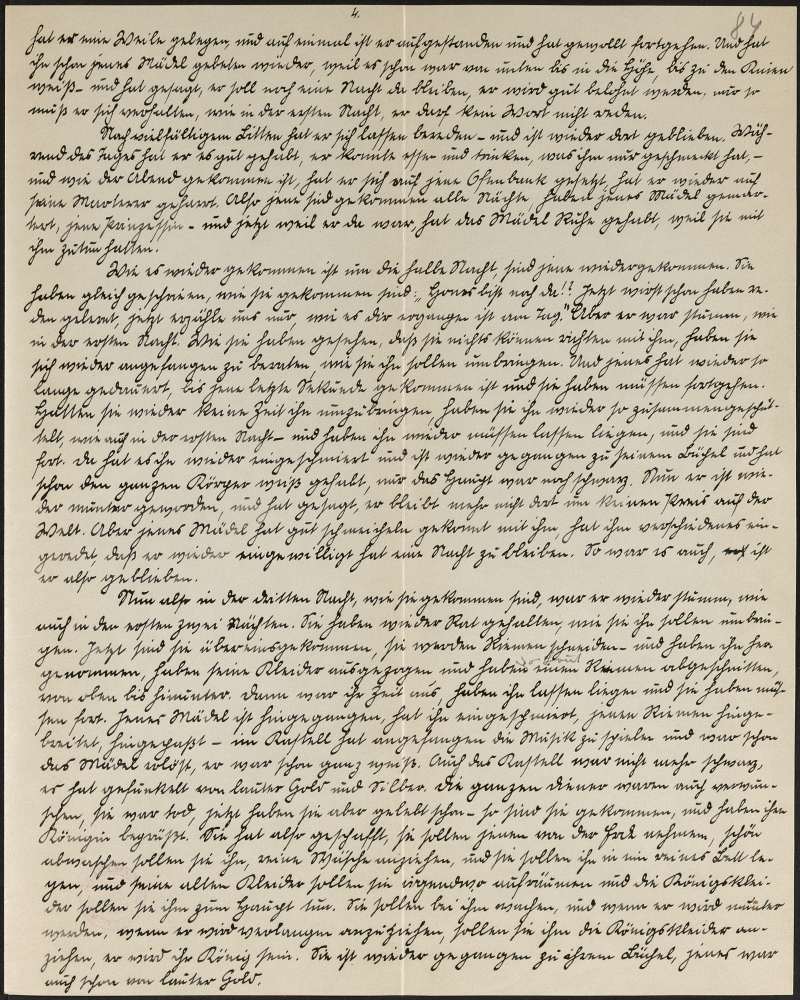 4.
84
hat er eine Weile gelegen, und auf einmal ist er aufgestanden und hat gewollt fortgehen. Und hat
ihn schon jenes Mädel gebeten wieder, weil es schon war von unten bis in die Höhe, bis zu den Knien
weiß – und hat gesagt, er soll noch eine Nacht da bleiben, er wird gut belohnt werden, nur so
muß er sich verhalten, wie in der ersten Nacht, er darf kein Wort nicht reden.
Nach vielfältigem Bitten hat er sich lassen bereden – und ist wieder dort geblieben. Wäh-
rend des Tages hat er es gut gehabt, er konnte essen und trinken, was ihm nur geschmeckt hat, –
und wie der Abend gekommen ist, hat er sich auf jene Ofenbank gesetzt, hat er wieder auf
seine Marterer geharrt. Also jene sind gekommen alle Nächte, haben jenes Mädel gemar-
tert, jene Prinzessin – und jetzt weil er da war, hat das Mädel Ruhe gehabt, weil sie mit
ihm zutun hatten.
Wie es wieder gekommen ist um die halbe Nacht, sind jene wiedergekommen. Sie
haben gleich geschrien, wie sie gekommen sind: „Hones bist noch da!? Jetzt wirst schon haben re-
den gelernt, jetzt erzähle uns nur, wie es dir ergangen ist am Tag." Aber er war stumm, wie
in der ersten Nacht. Wie sie haben gesehen, daß sie nichts können richten mit ihm, haben sie
sich wieder angefangen zu beraten, wie sie ihn sollen umbringen. Und jenes hat wieder so
lange gedauert, bis jene letzte Sekunde gekommen ist und sie haben müssen fortgehen.
Hatten sie wieder keine Zeit ihn umzubringen, haben sie ihn wieder so zusammengeschüt-
telt, wie auch in der ersten Nacht – und haben ihn wieder müssen lassen liegen, und sie sind
fort. Da hat es ihn wieder eingeschmiert und ist wieder gegangen zu seinem Büchel und hat
schon den ganzen Körper weiß gehabt, nur das Haupt war noch schwarz. Nun er ist wie-
der munter geworden, und hat gesagt, er bleibt mehr nicht dort um keinen Preis auf der
Welt. Aber jenes Mädel hat gut schmeicheln gekonnt mit ihm hat ihm verschiedenes ein-
geredet, daß er wieder eingewilligt hat eine Nacht zu bleiben. So war es auch, ist
er also geblieben.
Nun also in der dritten Nacht, wie sie gekommen sind, war er wieder stumm, wie
auch in den ersten zwei Nächten. Sie haben wieder Rat gehalten, wie sie ihn sollen umbrin-
gen. Jetzt sind sie übereinsgekommen, sie werden Riemen schneiden – und haben ihn her
genommen, haben seine Kleider ausgezogen und haben einen Riemen abgeschnitten,
von oben bis hinunter. Dann war ihr Zeit aus, haben ihn lassen liegen und sie haben müs-
sen fort. Jenes Mädel ist hingegangen, hat ihn eingeschmiert, jenen Riemen hinge-
breitet, hingepaßt – im Kastell hat angefangen die Musik zu spielen und war schon
das Mädel erlöst, er war schon ganz weiß. Auch das Kastell war nicht mehr schwarz,
es hat gefunkelt von lauter Gold und Silber. Die ganzen Diener waren auch verwun-
schen, sie war tod, jetzt haben sie aber gelebt schon – so sind sie gekommen, und haben ihre
Königin begrüßt. Sie hat also geschafft, sie sollen jenen von der Erde nehmen, schön
abwaschen sollen sie ihn, reine Wäsche anziehen, und sie sollen ihn in ein reines Bett le-
gen, und seine alten Kleider sollen sie irgendwo aufräumen und die Königsklei-
der sollen sie ihm zum Haupt tun. Sie sollen bei ihm wachen, und wenn er wird munter
werden, wenn er wird verlangen anzuziehen, sollen sie ihm die Königskleider an-
ziehen, er wird ihr König sein. Sie ist wieder gegangen zu ihrem Büchel, jenes war
auch schon von lauter Gold.